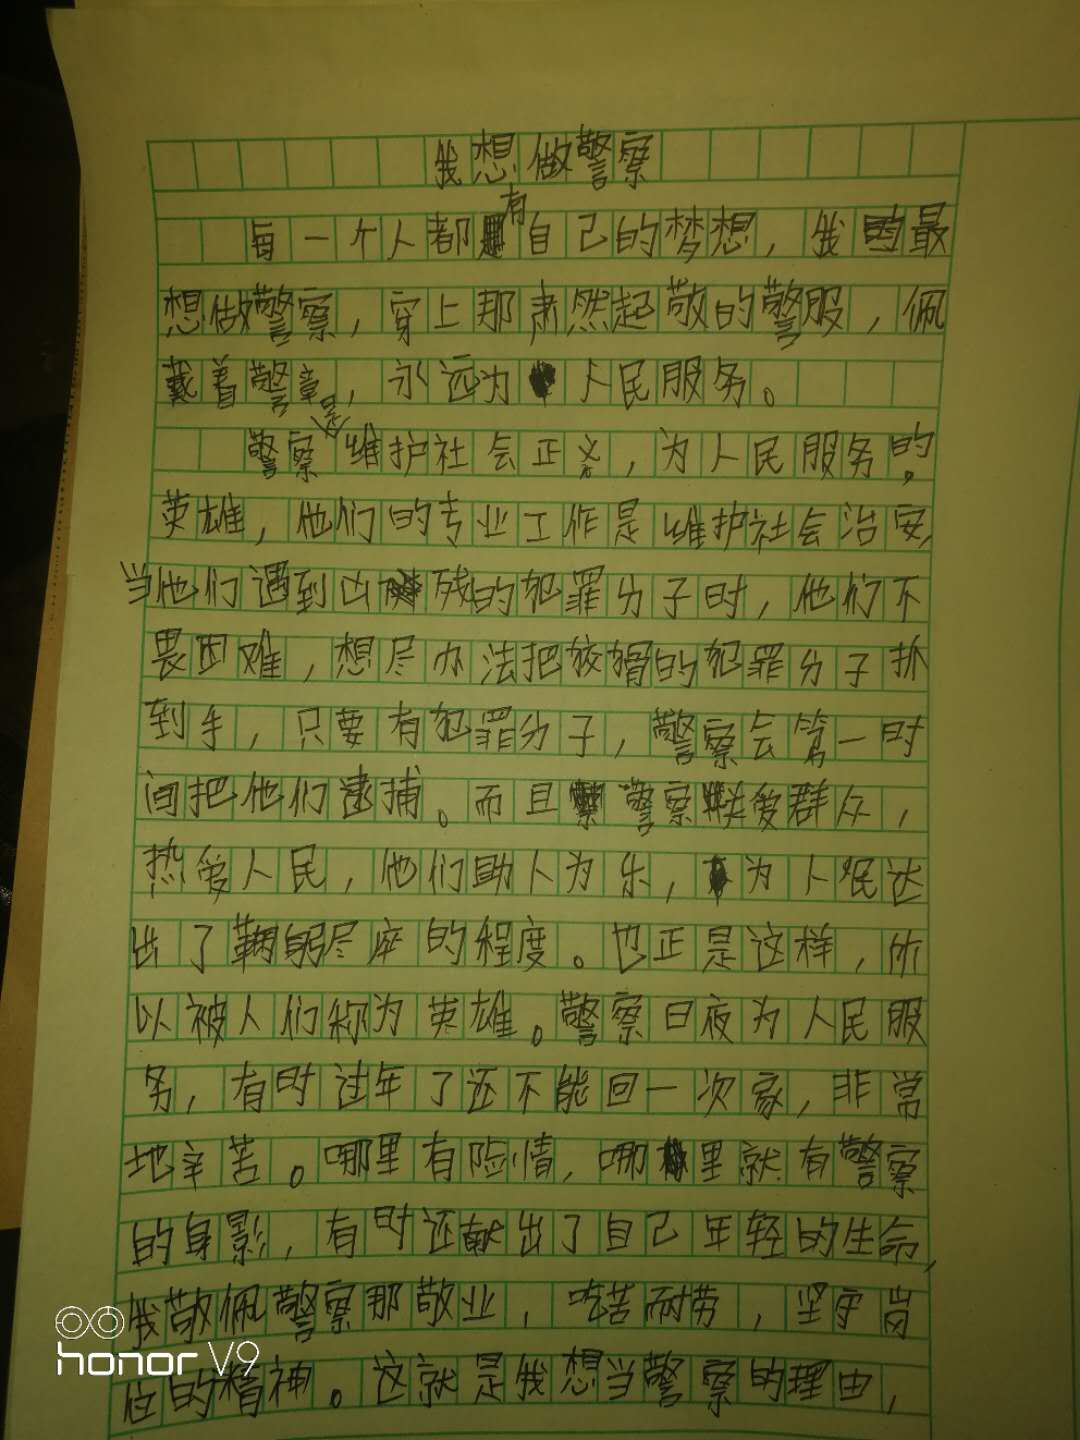 我想做警察
每一个人都有自己的梦想，我最
想做警察，穿上那肃然起敬的警服，佩
戴着警章，永远为人民服务。
警察是维护社会正义，为人民服务的
英雄，他们的专业工作是维护社会治安，
当他们遇到凶残的犯罪分子时，他们不
畏困难，想尽办法把狡猾的犯罪分子抓
到手，只要有犯罪分子，警察会第一时
间把他们逮捕。而且警察联爱群众，
热爱人民，他们助人为乐，为人民达
出了鞠躬尽座的程度。也正是这样，所
以被人们称为英雄。警察日夜为人民服
务，有时过年了还不能回一次家，非常
地辛苦。哪里有险情，哪里就有警察
的身影，有时还献出了自己年轻的生命，
我敬佩警察那敬业，吃苦而劳，坚守岗
位的精神。这就是我想当警察的理由，
honor V9